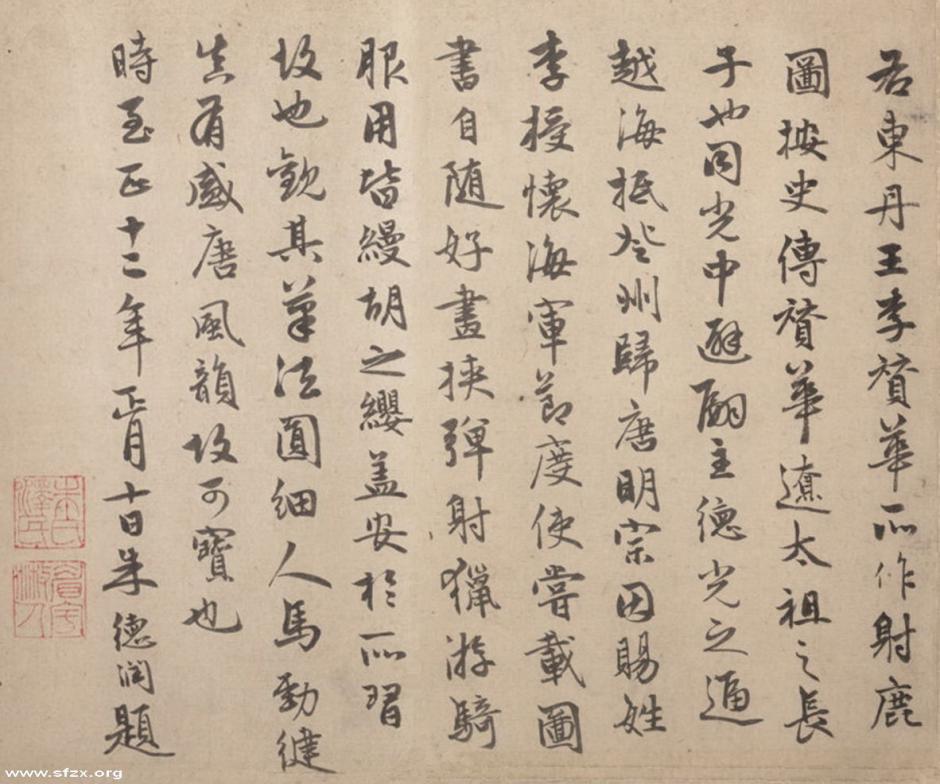 右東丹王李贊華所作射鹿
圖按史傳贊華遼太祖之長
子也同光中避嗣主德光之逼
越海抵登州歸唐明宗因賜姓
李授懷海軍節度使嘗載圖
書自随好畫挾彈射獵游騎
服用皆縵胡之纓盖安於所習
故也觀其筆法圓細人馬勁健
真有盛唐風韻故可寶也
時至正十二年正月十日朱德润題
朱氏澤民
www.sfzx.org